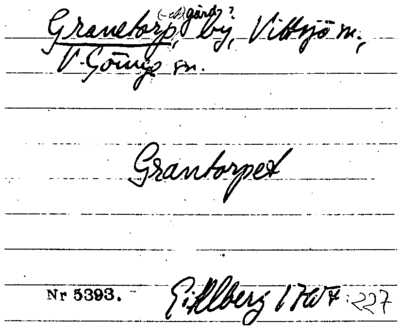 (-et) gård?
Granetorp, by, Vittsjö sn,
V. Göinge sn.
Grantorpet
Nr 5393. Gillberg 1767: 227